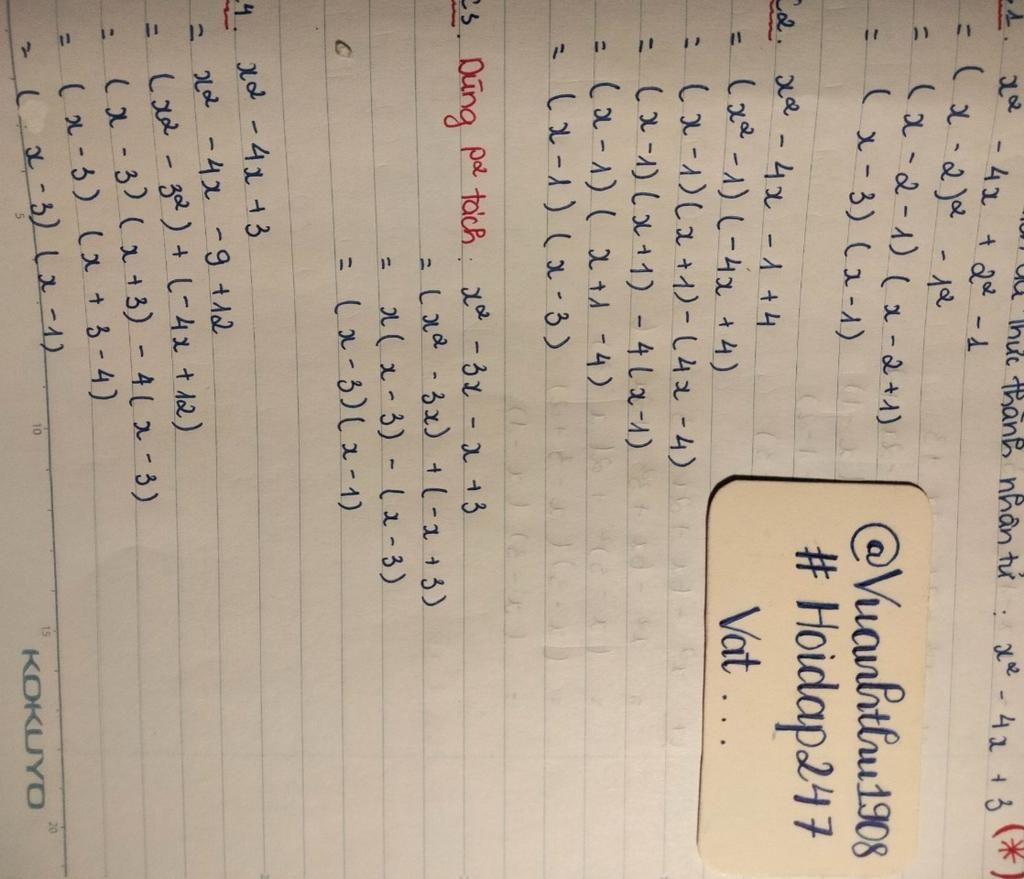 thức thành nhân tử : x² - 4x + 3 (*)
1. x² - 4x + 2² - 1
= (x - 2)² - 1²
= (x - 2 - 1) (x - 2 + 1)
= (x - 3) (x - 1)
2. x² - 4x - 1 + 4
= (x² - 1) (-4x + 4)
= (x - 1) (x + 1) - (4x - 4)
= (x - 1) (x + 1) - 4(x - 1)
= (x - 1) (x + 1 - 4)
= (x - 1) (x - 3)
3. Dùng p² tách : x² - 3x - x + 3
= (x² - 3x) + (-x + 3)
= x(x - 3) - (x - 3)
= (x - 3) (x - 1)
4. x² - 4x + 3
= x² - 4x - 9 + 12
= (x² - 3²) + (-4x + 12)
= (x - 3) (x + 3) - 4(x - 3)
= (x - 3) (x + 3 - 4)
= (x - 3) (x - 1)
@Vuanhthu1908
# Hoidap247
Vat . . .
5 10 15 20
KOKUYO